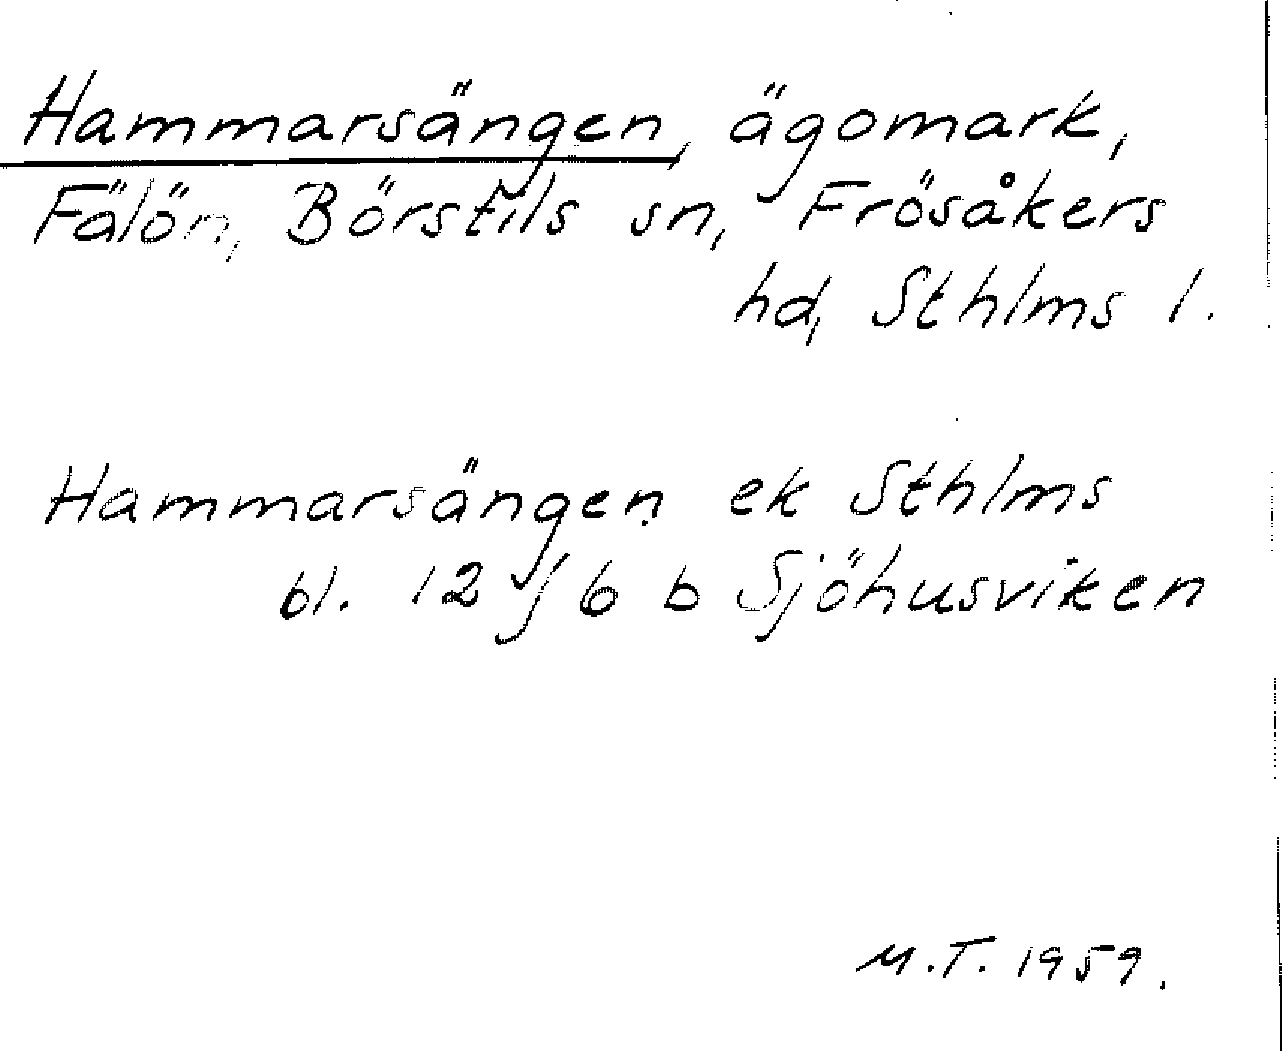 Hammarsängen, ägomark,
Fälön, Börstils sn, Frösåkers
hd, Sthlms l.
Hammarsängen ek Sthlms
bl. 12 j 6 b Sjöhusviken
M.T. 1959.